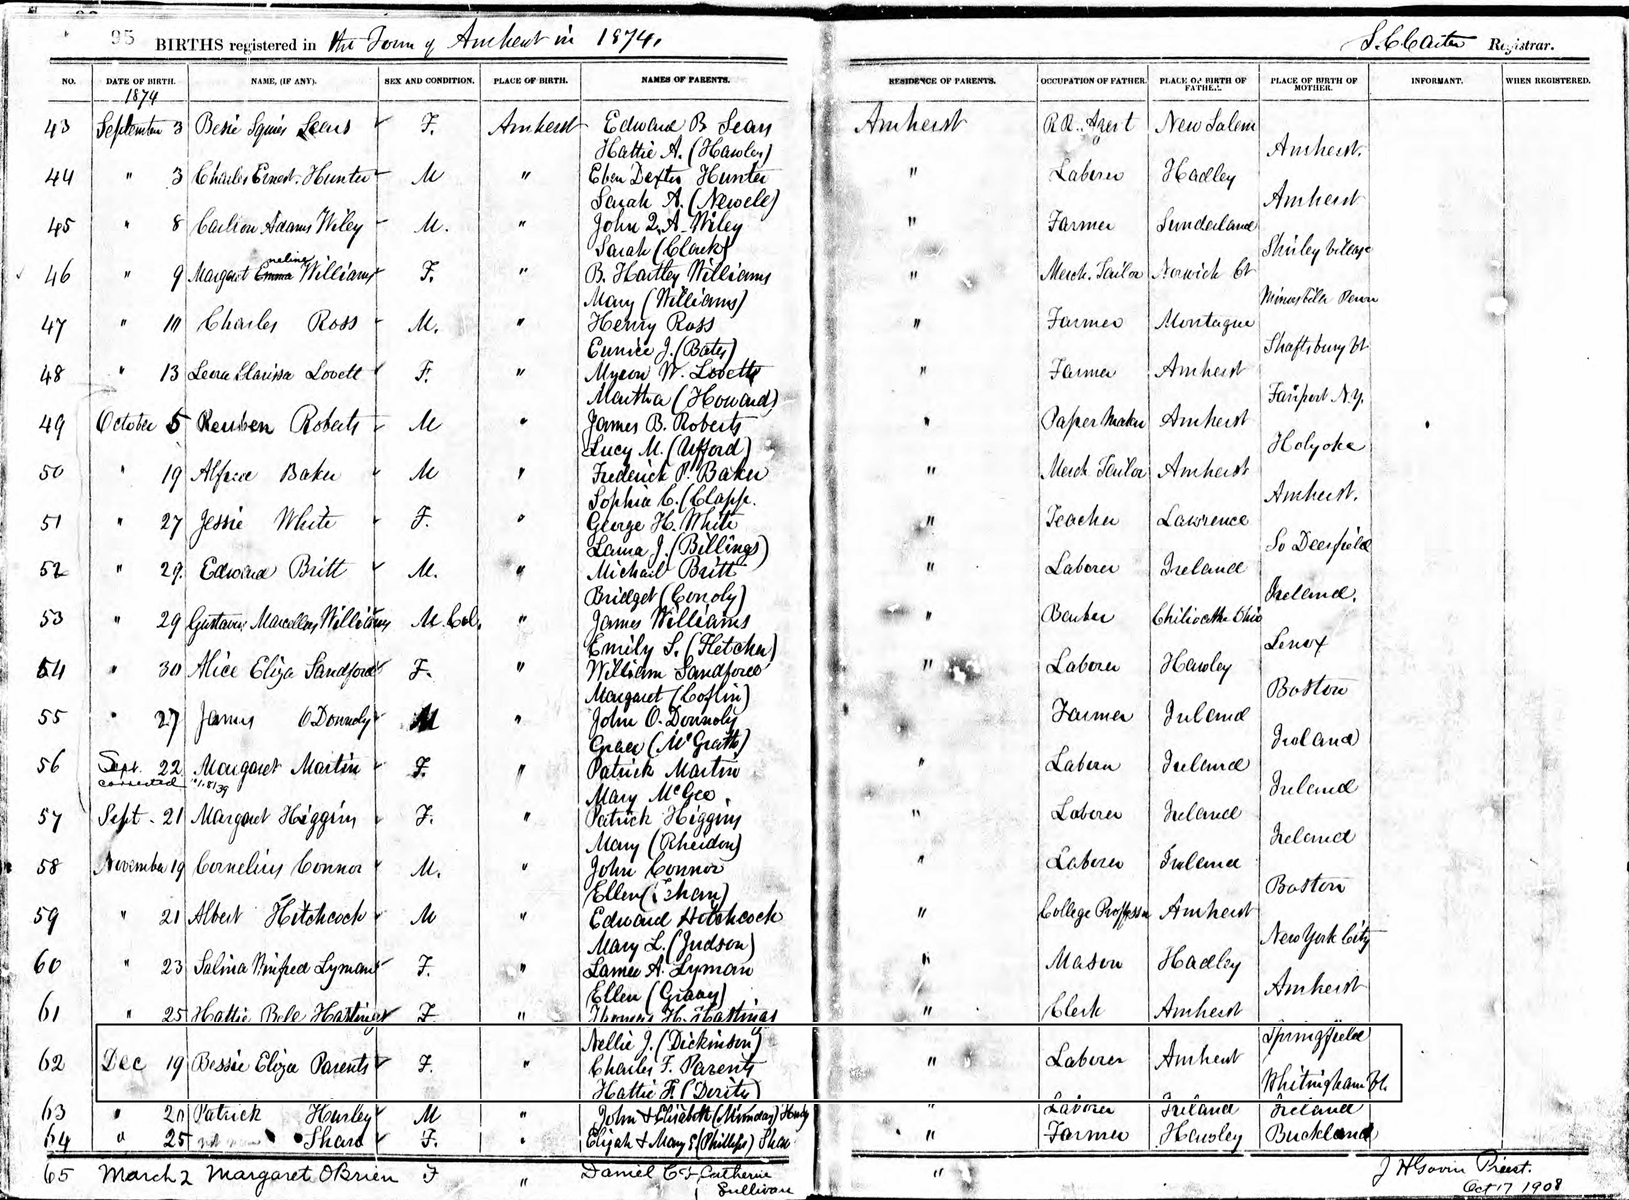 95 BIRTHS registered in the Town of Amherst in 1874. S.C. Carter Registrar.
NO. DATE OF BIRTH. NAME, (IF ANY). SEX AND CONDITION. PLACE OF BIRTH. NAMES OF PARENTS. RESIDENCE OF PARENTS. OCCUPATION OF FATHER. PLACE OF BIRTH OF FATHER. PLACE OF BIRTH OF MOTHER. INFORMANT. WHEN REGISTERED.
1874
43 September 3 Bessie Squies Sears F. Amherst Edward B Sears Amherst R.R. Agent New Salem
Hattie A. (Hawley) Amherst.
44 " 3 Charles Ernest Hunter M " Eben Dexter Hunter " Laborer Hadley
Sarah A. (Newele) Amherst
45 " 8 Carlton Adams Wiley M. " John Q. A. Wiley " Farmer Sunderland
Sarah (Clark) Shirley Village
46 " 9 Margaret Emma neline Williams F. " B. Hartley Williams " Merch. Tailor Norwich Ct
Mary (Williams) Minersville Penn
47 " 10 Charles Ross M. " Henry Ross " Farmer Montague
Eunice J. (Bates) Shaftsbury Vt
48 " 13 Clarissa Lovett F. " Myron W. Lovett " Farmer Amherst
Martha (Howard) Fairport N.Y.
49 October 5 Reuben Roberts M " James B. Roberts " Paper Maker Amherst
Lucy M. (Ufford) Holyoke
50 " 19 Alfred Baker M " Frederick P. Baker " Merch Tailor Amherst
Sophia C. (Clapp. Amherst.
51 " 27 Jessie White F. " George H. White " Teacher Lawrence
J. (Billings) So Deerfield
52 " 29. Edward Britt M. " Michael Britt " Laborer Ireland
Bridget (Conoly) Ireland.
53 " 29 Gustavus Marcellus Williams M. Col. " James Williams " Barber Chilicothe Ohio
Emily S. (Fletcher) Lenox
54 " 30 Alice Eliza Sandford F. " William Sandford " Laborer Hawley
Margaret (Coflin) Boston
55 " 27 James O'Donnoly M " John O. Donnoly " Farmer Ireland
Grace (McGrath) Ireland
56 Sept. 22 Margaret Martin F. " Patrick Martin " Laborer Ireland
corrected Mary McGee Ireland
57 Sept. 21 Margaret Higgins F. " Patrick Higgins " Laborer Ireland
Mary (Rheidon) Ireland
58 November 19 Cornelius Connor M. " John Connor " Laborer Ireland
Ellen Boston
59 " 21 Albert Hitchcock M " Edward Hitchcock " College Professor Amherst
Mary L. (Judson) New York City
60 " 23 Salina Winifred Lyman F. " A. Lyman " Mason Hadley
Ellen (Graay) Amherst
61 " 25 Hattie Bell Hastings F " Thomas H. Hastings " Clerk Amherst
Nellie J. (Dickinson) Springfield
62 Dec 19 Bessie Eliza Parents F. " Charles F. Parents " Laborer Amherst
Hattie F. (Derita) Whitingham Vt.
63 " 20 Patrick Hurley M " John & Elizabeth Hurley " Laborer Ireland Ireland
64 " 25 Shaw F. " Elijah & Mary E (Phillips) Shaw " Farmer Hawley Buckland
65 March 2 Margaret O'Brien F " Daniel C & Catherine " J H Gavin Priest.
Sullivan Oct 17 1908